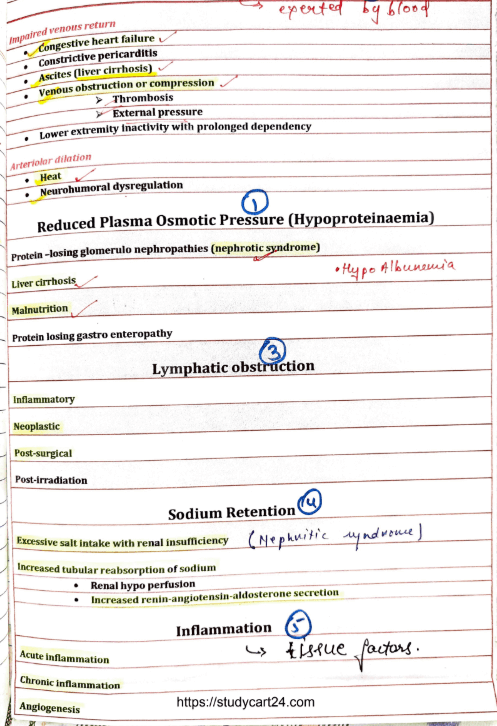 ↳ exerted by blood
Impaired venous return
• Congestive heart failure ✓
• Constrictive pericarditis
• Ascites (liver cirrhosis) ✓
• Venous obstruction or compression ✓
➢ Thrombosis
➢ External pressure
• Lower extremity inactivity with prolonged dependency
Arteriolar dilation
• Heat ✓
• Neurohumoral dysregulation
①
Reduced Plasma Osmotic Pressure (Hypoproteinaemia)
Protein –losing glomerulo nephropathies (nephrotic syndrome)
• Hypo Albunemia
Liver cirrhosis ✓
Malnutrition ✓
Protein losing gastro enteropathy
③
Lymphatic obstruction
Inflammatory
Neoplastic
Post-surgical
Post-irradiation
Sodium Retention ④
Excessive salt intake with renal insufficiency (Nephritic syndrome)
Increased tubular reabsorption of sodium
• Renal hypo perfusion
• Increased renin-angiotensin-aldosterone secretion
Inflammation ⑤
↳ tissue factors.
Acute inflammation
Chronic inflammation
Angiogenesis
https://studycart24.com